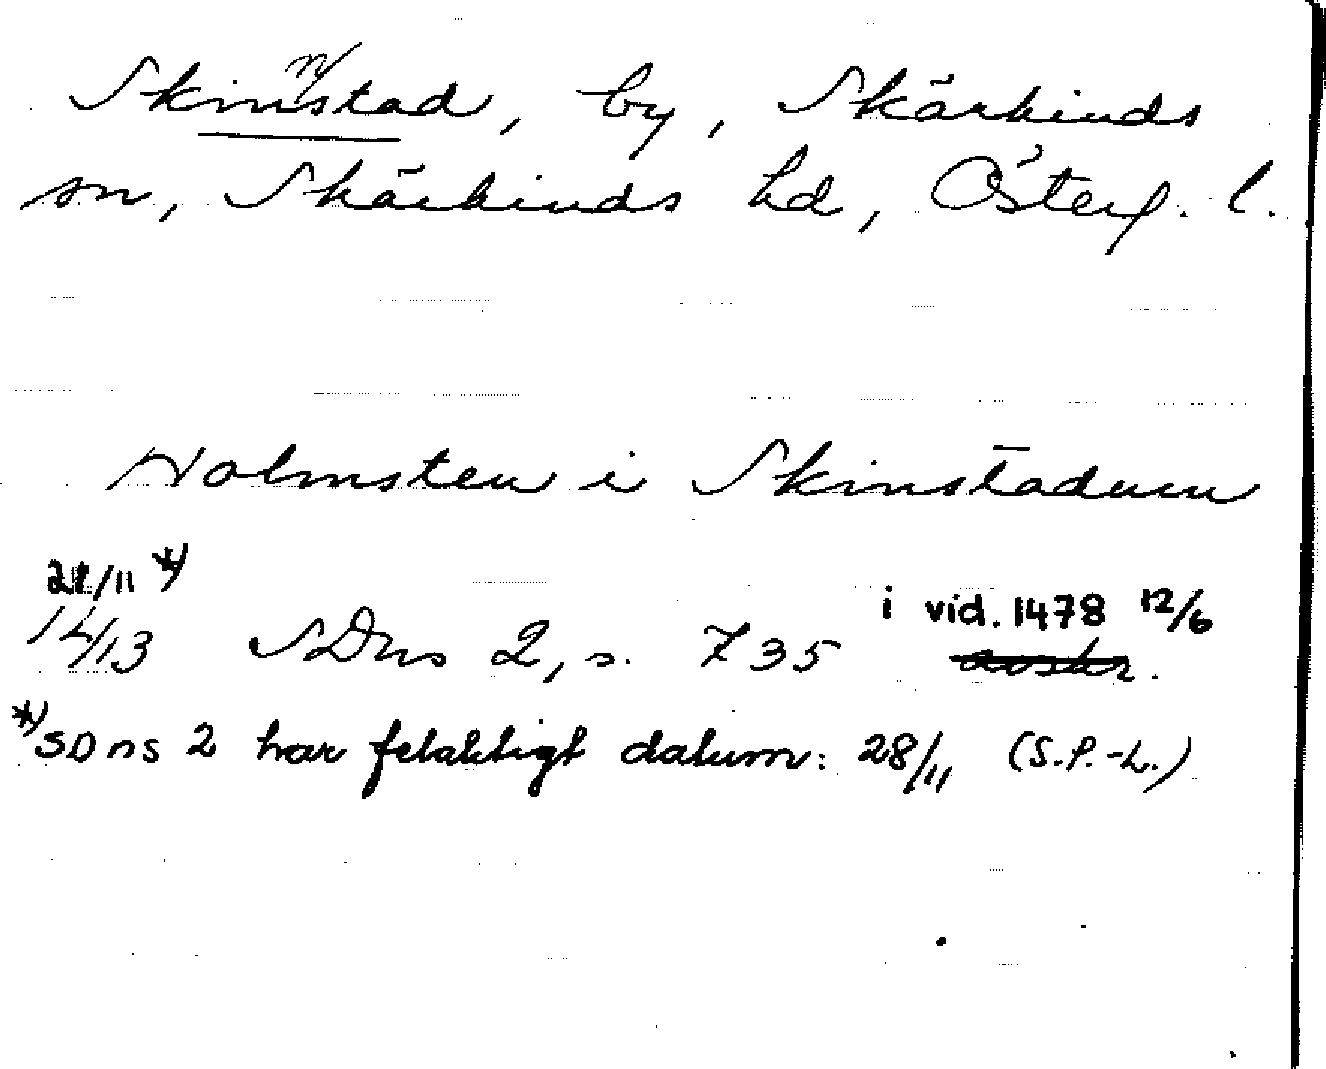 Skinnstad, by, Skärkinds
sn, Skärkinds hd, Österg. l.
Holmsten i Skinstadum
/11 *)
1413 SDns 2, s. 735 i vid. 1478 12/6
avskr.
*) SDns 2 har felaktigt datum: 28/11 (S.P.-L.)